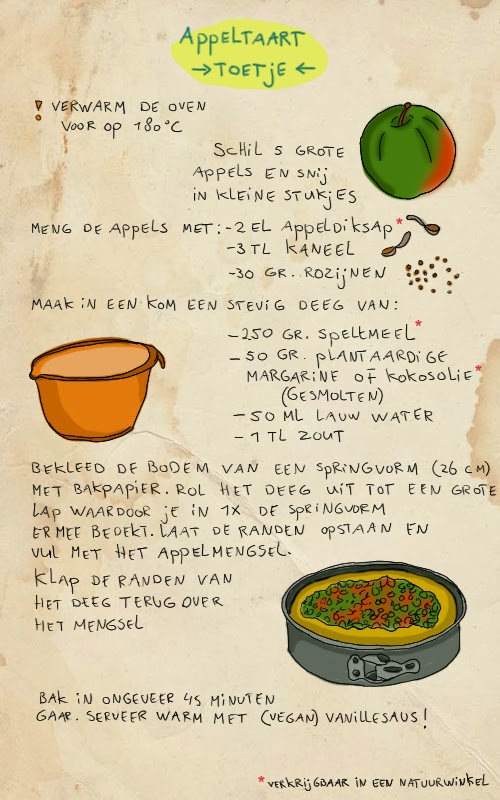 APPELTAART
→TOETJE←
! VERWARM DE OVEN
VOOR OP 180°C
SCHIL 5 GROTE
APPELS EN SNIJ
IN KLEINE STUKJES
MENG DE APPELS MET: -2 EL APPELDIKSAP*
-3 TL KANEEL
-30 GR. ROZIJNEN
MAAK IN EEN KOM EEN STEVIG DEEG VAN:
-250 GR. SPELTMEEL*
-50 GR. PLANTAARDIGE
MARGARINE OF KOKOSOLIE*
(GESMOLTEN)
-50 ML LAUW WATER
-1 TL ZOUT
BEKLEED DE BODEM VAN EEN SPRINGVORM (26 CM)
MET BAKPAPIER. ROL HET DEEG UIT TOT EEN GROTE
LAP WAARDOOR JE IN 1X DE SPRINGVORM
ERMEE BEDEKT. LAAT DE RANDEN OPSTAAN EN
VUL MET HET APPELMENGSEL.
KLAP DE RANDEN VAN
HET DEEG TERUG OVER
HET MENGSEL
BAK IN ONGEVEER 45 MINUTEN
GAAR. SERVEER WARM MET (VEGAN) VANILLESAUS!
*VERKRIJGBAAR IN EEN NATUURWINKEL